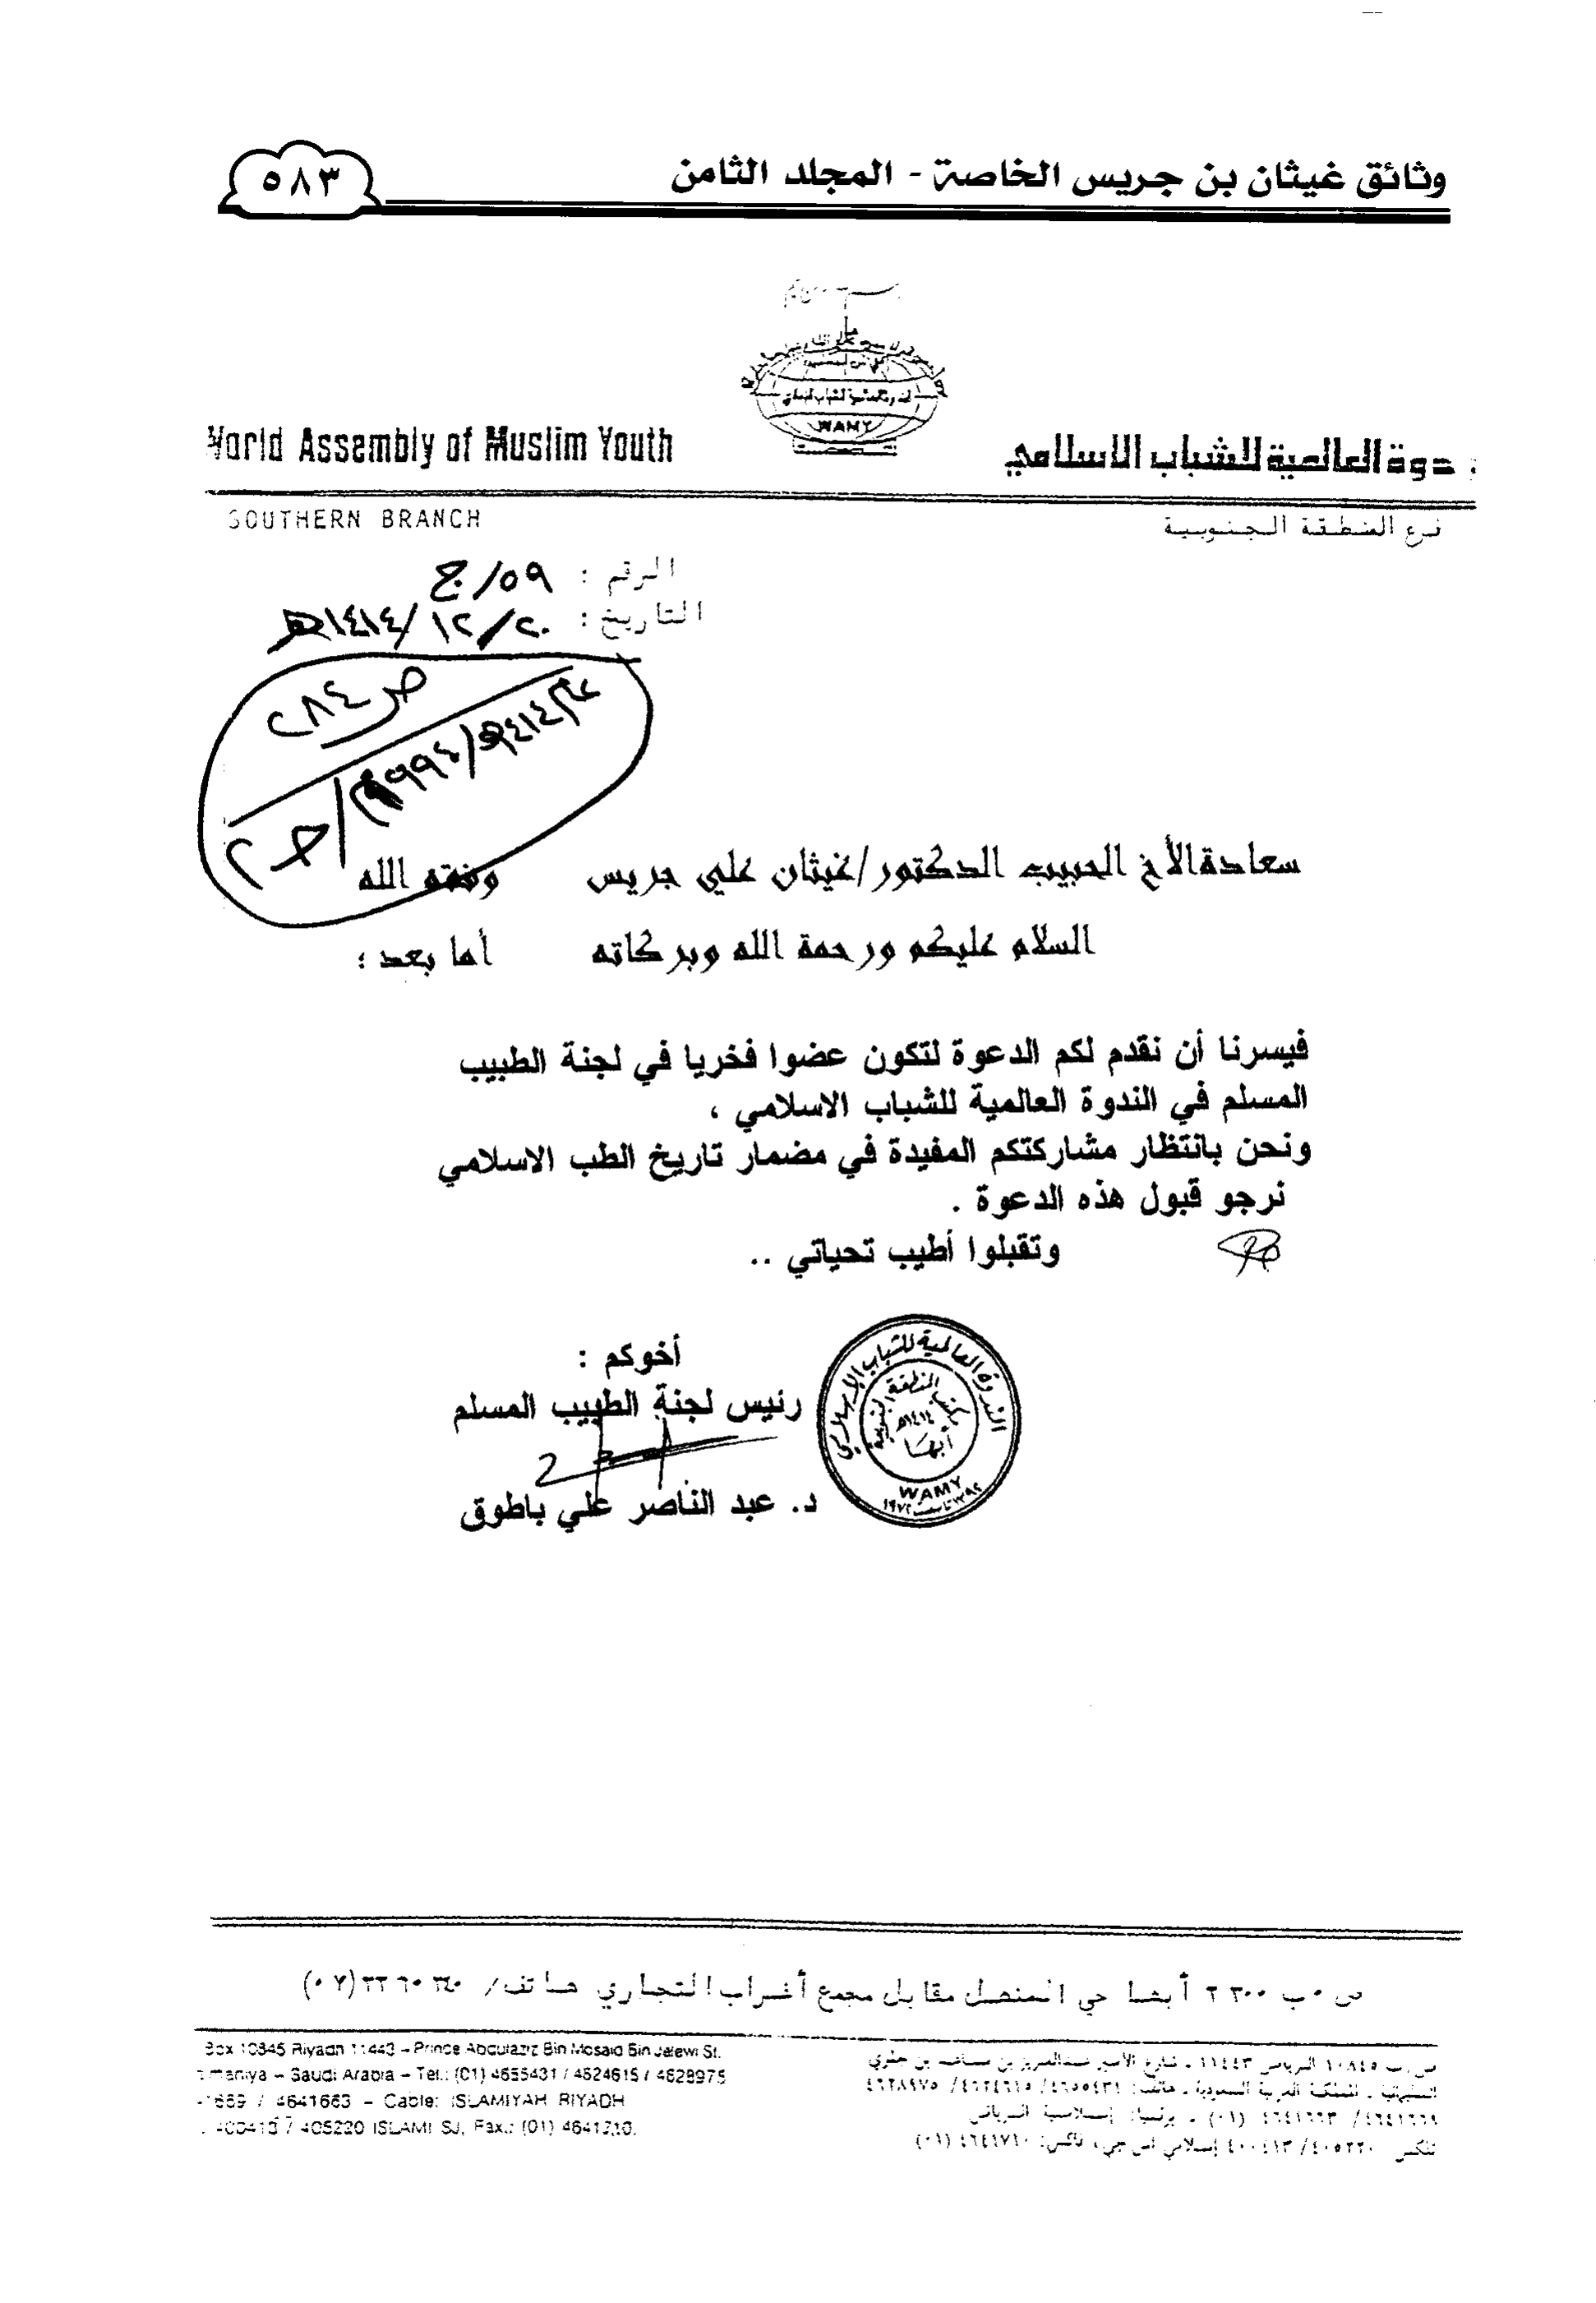 وثائق غيثان بن جريس الخاصة - المجلد الثامن
٥٨٣
World Assembly of Muslim Youth
دوة العالمية للشباب الاسلامي
WAMY
SOUTHERN BRANCH
فرع المنطقة الجنوبية
الرقم : ٥٩/ج
التاريخ : ٢٠/١٢/١٤١٤هـ
ص ٢٨٤
سعادة الأخ الحبيب الدكتور/غيثان علي جريس وفقه الله
السلام عليكم ورحمة الله وبركاته أما بعد ؛
فيسرنا أن نقدم لكم الدعوة لتكون عضوا فخريا في لجنة الطبيب
المسلم في الندوة العالمية للشباب الاسلامي ،
ونحن بانتظار مشاركتكم المفيدة في مضمار تاريخ الطب الاسلامي
نرجو قبول هذه الدعوة .
وتقبلوا أطيب تحياتي ..
أخوكم :
رئيس لجنة الطبيب المسلم
د. عبد الناصر علي باطوق
الندوة العالمية للشباب الإسلامي
مكتب المنطقة الجنوبية
١٤١٤هـ
أبها
WAMY
ص٠ب ٢٣٠٠ أبها حي المنهل مقابل مجمع أغراب التجاري هاتف/ ٢٢٦٠٣٤٠(٠٧)
Box 10845 Riyadh 11443 – Prince Abdulaziz Bin Mosaid Bin Jalewi St.
maniya – Saudi Arabia – Tel.: (01) 4655431 / 4624615 / 4628975
1669 / 4641663 – Cable: ISLAMIYAH RIYADH
400413 / 405220 ISLAMI SJ, Fax.: (01) 4641710.
ص.ب ١٠٨٤٥ الرياض ١١٤٤٣ ـ شارع الأمير عبدالعزيز بن مساعد بن جلوي
السليمانية ـ المملكة العربية السعودية ـ هاتف: ٤٦٥٥٤٣١/ ٤٦٢٤٦١٥/ ٤٦٢٨٩٧٥
٤٦٤١٦٦٩/ ٤٦٤١٦٦٣ (٠١) ـ برقيا: إسلامية الرياض
تلكس ٤٠٥٢٢٠/ ٤٠٠٤١٣ إسلامي اس جي، فاكس: ٤٦٤١٧١٠ (٠١)